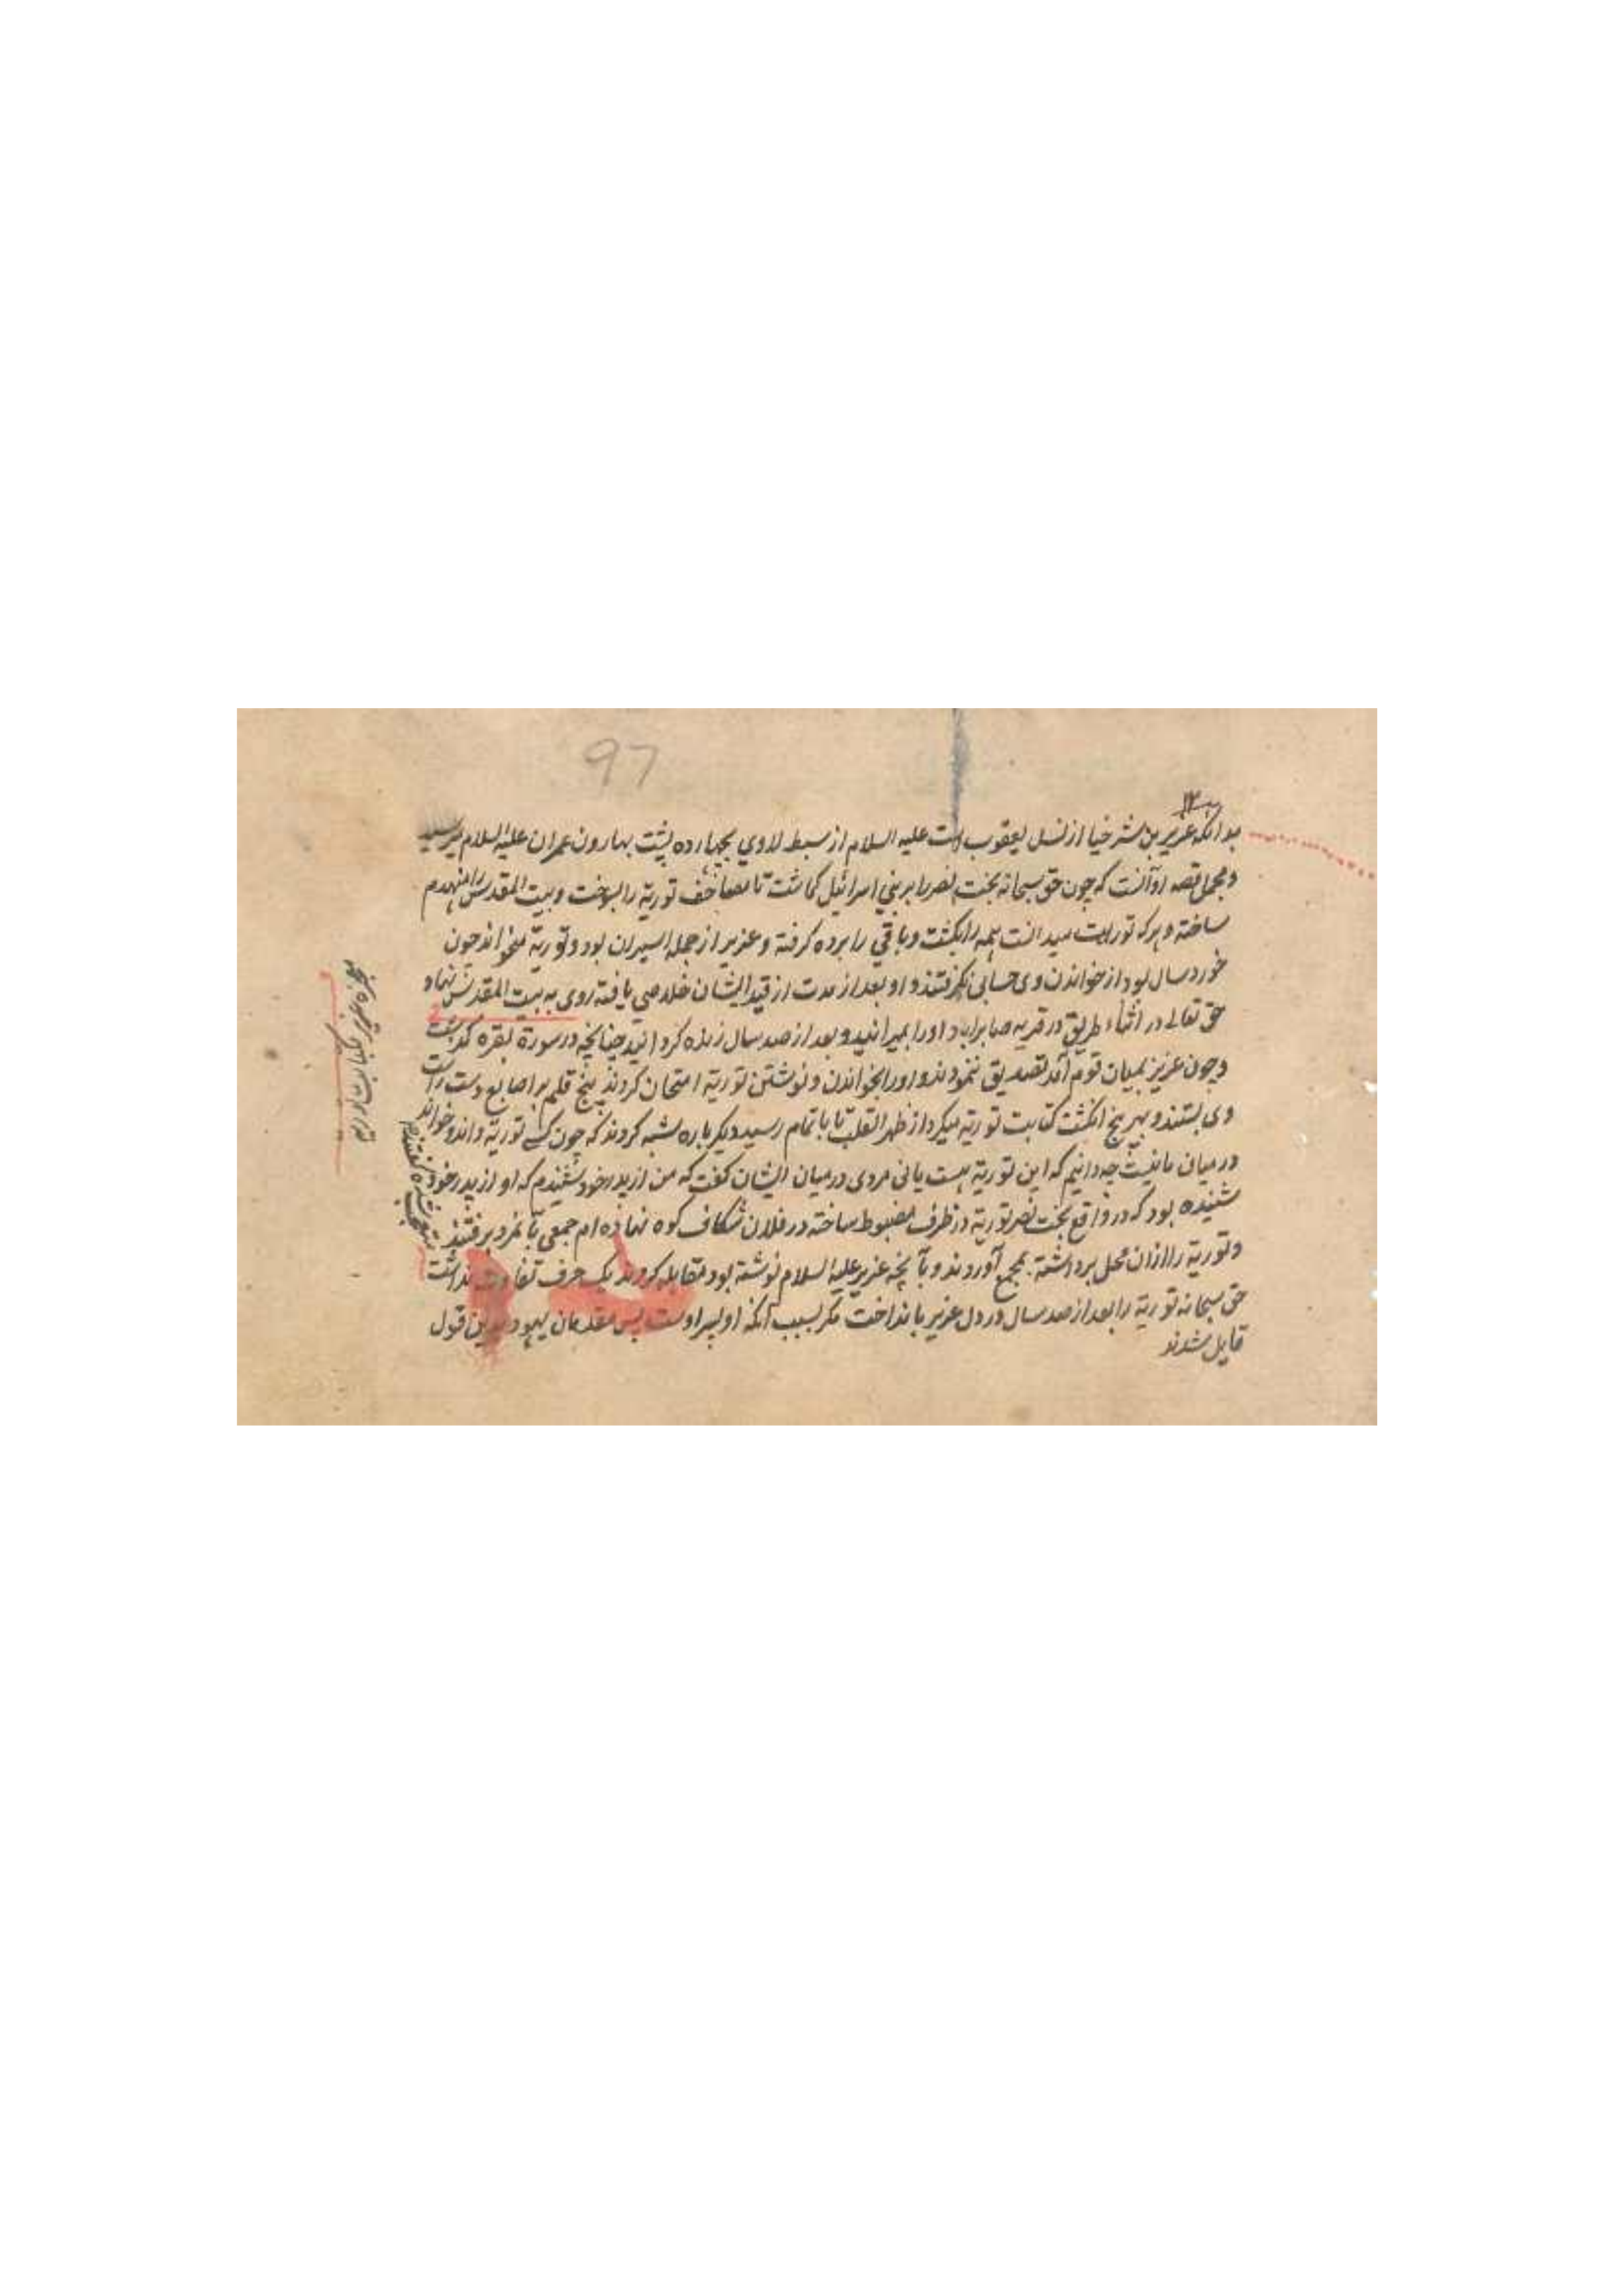 97
بدانکه عزیر بن شرخیا از نسل یعقوب است علیه السلام از سبط لاوی بچهارده پشت بهارون عمران علیه السلام میرسید
و مجمل قصه او آنست که چون حق سبحانه بخت نصر را بر بنی اسرائیل کماشت تا مصاحف توریة را بسوخت و بیت المقدس را منهدم
ساخته و هرکه تورات میدانست همه را بکشت و باقی را برده کرفته و عزیر از جمله اسیران بود و توریة میخواند چون
خورد سال بود از خواندن وی حسابی نکرفتند و او بعد از مدت از قید ایشان خلاصی یافته روی به بیت المقدس نهاد
حق تعالی در اثناء طریق در قریه صابراباد او را بمیرانید و بعد از صد سال زنده کردانید چنانچه در سورة بقره کذشت
و چون عزیر بمیان قوم آمد تصدیق ننمودند و او را بخواندن و نوشتن توریة امتحان کردند پنج قلم بر اصابع دست راست
وی بستند و بهر پنج انکشت کتابت توریة میکرد از ظهر القلب تا باتمام رسید دیکر باره شبه کردند که چون کسی توریة داند و خواند
در میان ما نیست چه دانیم که این توریة هست یا نی مردی در میان ایشان کفت که من از پدر خود شنیدم که او از پدر خود
شنیده بود که در واقع بخت نصر توریة در ظرف مضبوط ساخته در فلان شکاف کوه نهاده ام جمعی با نمرد برفتند
و توریة را ازان محل برداشته بمجمع آوردند و با آنچه عزیر علیه السلام نوشته بود مقابله کردند یک حرف تفاوت نداشت
متعجب شده کفتند
حق سبحانه توریة را بعد از صد سال در دل عزیر با نداخت مکر بسبب آنکه او پسر اوست پس مقدمان یهود بدین قول
قایل شدند
معجزه عزیر کتابت توریة